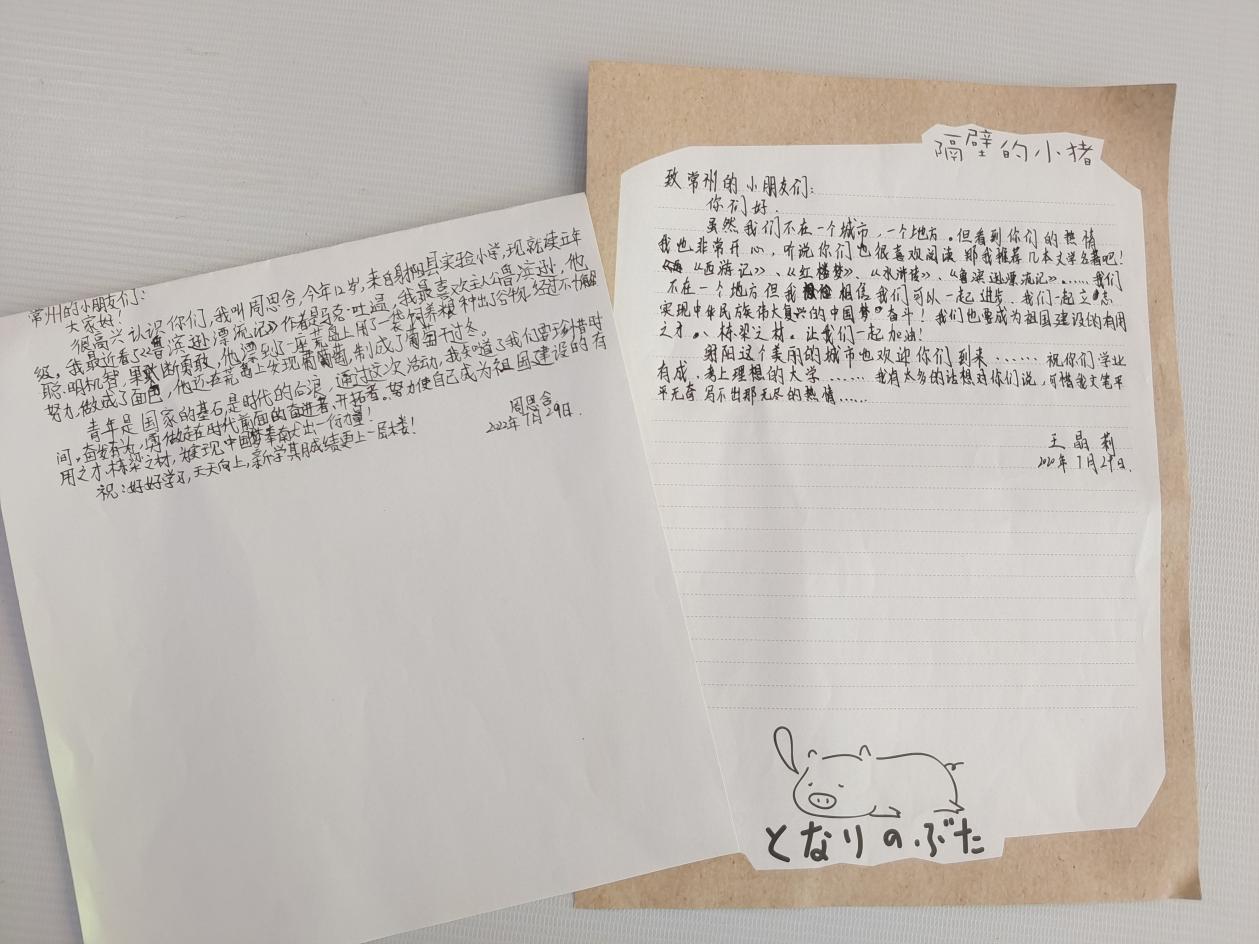 常州的小朋友们：
大家好！
很高兴认识你们，我叫周思含，今年12岁，来自射阳县实验小学，现就读五年
级。我最近看了《鲁滨逊漂流记》作者是马克·吐温，我最喜欢主人公鲁滨逊，他
聪明机智，果敢断勇敢，他漂到了一座荒岛上用了一袋饲养粮种出了谷物，经过不
努力，做成了面包，他还在荒岛上发现葡萄，制成了葡萄干过冬。
青年是国家的基石，是时代的后浪，通过这次活动，我知道了我们要珍惜时
间，奋发有为，勇做走在时代前面的奋进者、开拓者。努力使自己成为祖国建设的有
用之才、栋梁之材，为实现中国梦奉献出一份力量！
祝：好好学习，天天向上，新学期成绩更上一层楼！
周思含
2022年7月29日.
隔壁的小猪
致常州的小朋友们：
你们好.
虽然我们不在一个城市，一个地方。但看到你们的热情
我也非常开心，听说你们也很喜欢阅读 那我推荐几本文学名著吧！
《西游记》、《红楼梦》、《水浒传》、《鲁滨逊漂流记》……我们
不在一个地方但我相信我们可以一起进步，我们一起立志
实现中华民族伟大复兴的中国梦"奋斗！我们也要成为祖国建设的有用
之才、栋梁之材。让我们一起加油！
射阳这个美丽的城市也欢迎你们到来……祝你们学业
有成，考上理想的大学……我有太多的话想对你们说，可惜我文笔平
平无奇 写不出那无尽的热情……
王晶莉
7月29日.
となりのぶた